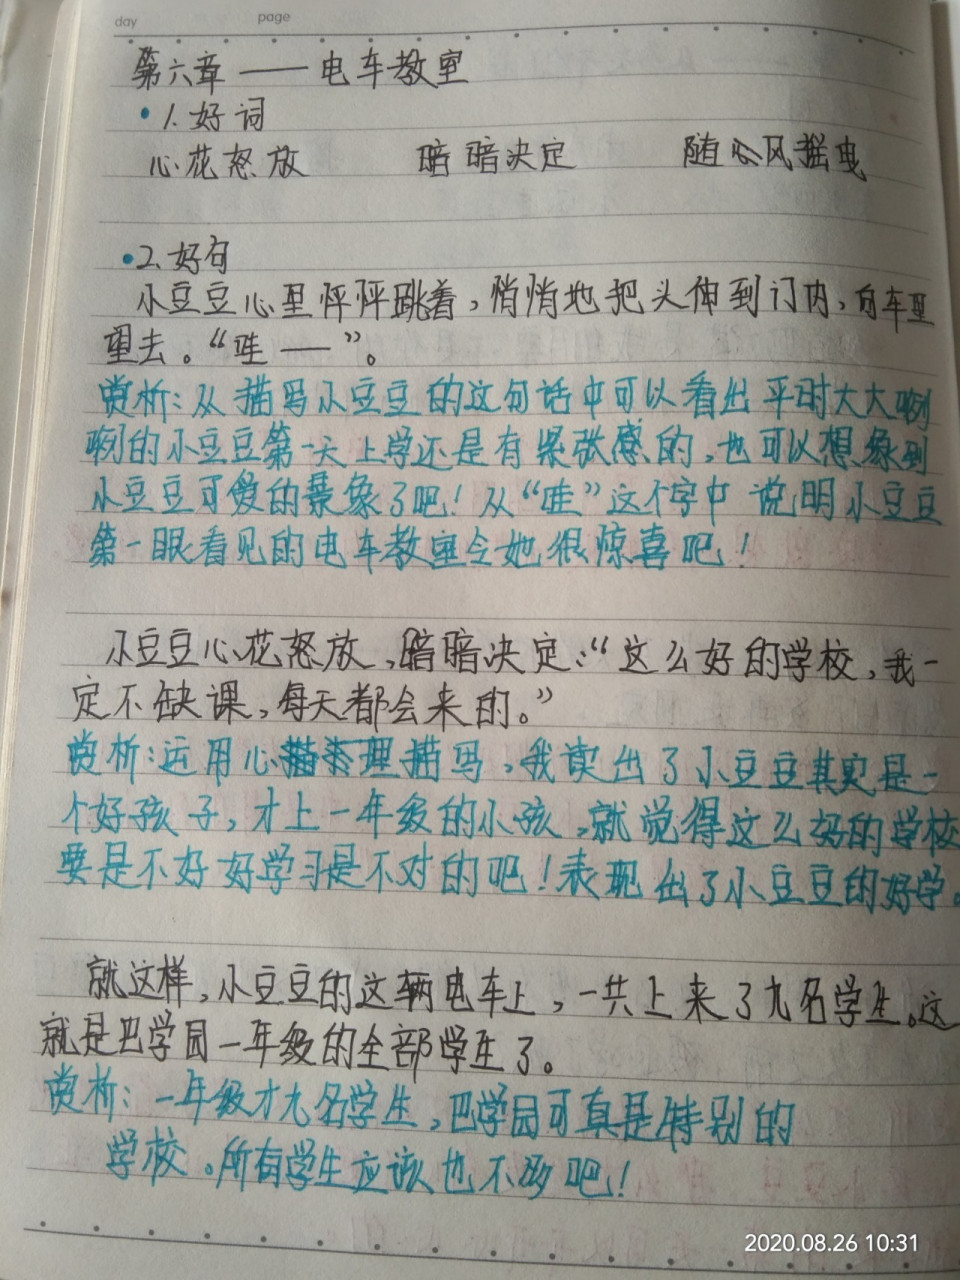 day page
第六章——电车教室
1.好词
心花怒放 暗暗决定 随风摇曳
2.好句
小豆豆心里怦怦跳着，悄悄地把头伸到门内，向车里
望去。“哇——”。
赏析：从描写小豆豆的这句话中可以看出平时大大咧
咧的小豆豆第一天上学还是有紧张感的，也可以想象到
小豆豆可爱的景象了吧！从“哇”这个字中说明小豆豆
第一眼看见的电车教室令她很惊喜吧！
小豆豆心花怒放，暗暗决定：“这么好的学校，我一
定不缺课，每天都会来的。”
赏析：运用心理描写，我读出了小豆豆其实是一
个好孩子，才上一年级的小孩，就觉得这么好的学校
要是不好好学习是不对的吧！表现出了小豆豆的好学。
就这样，小豆豆的这辆电车上，一共上来了九名学生。这
就是巴学园一年级的全部学生了。
赏析：一年级才九名学生，巴学园可真是特别的
学校。所有学生应该也不多吧！
2020.08.26 10:31